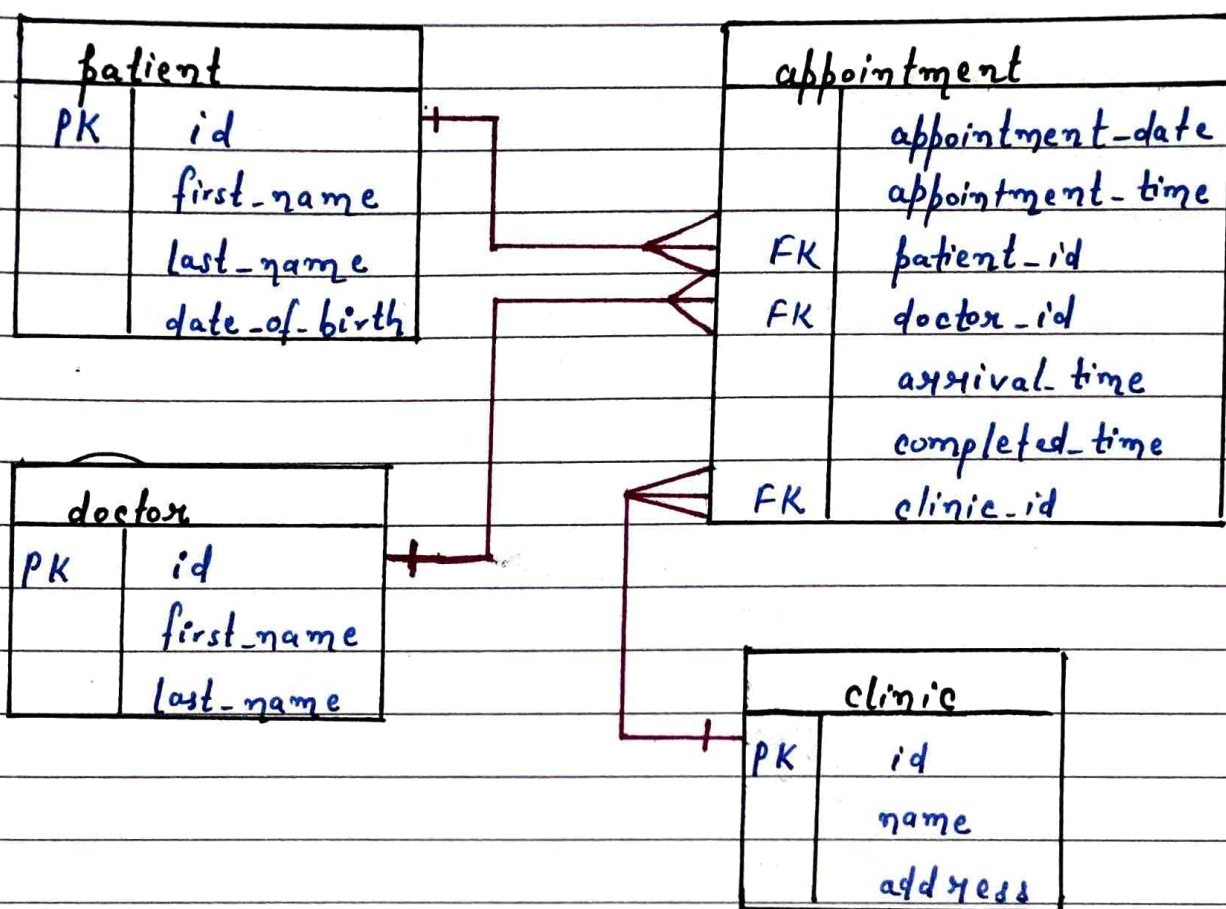 patient
PK id
first_name
last_name
date_of_birth
appointment
appointment_date
appointment_time
FK patient_id
FK doctor_id
arrival_time
completed_time
FK clinic_id
doctor
PK id
first_name
last_name
clinic
PK id
name
address